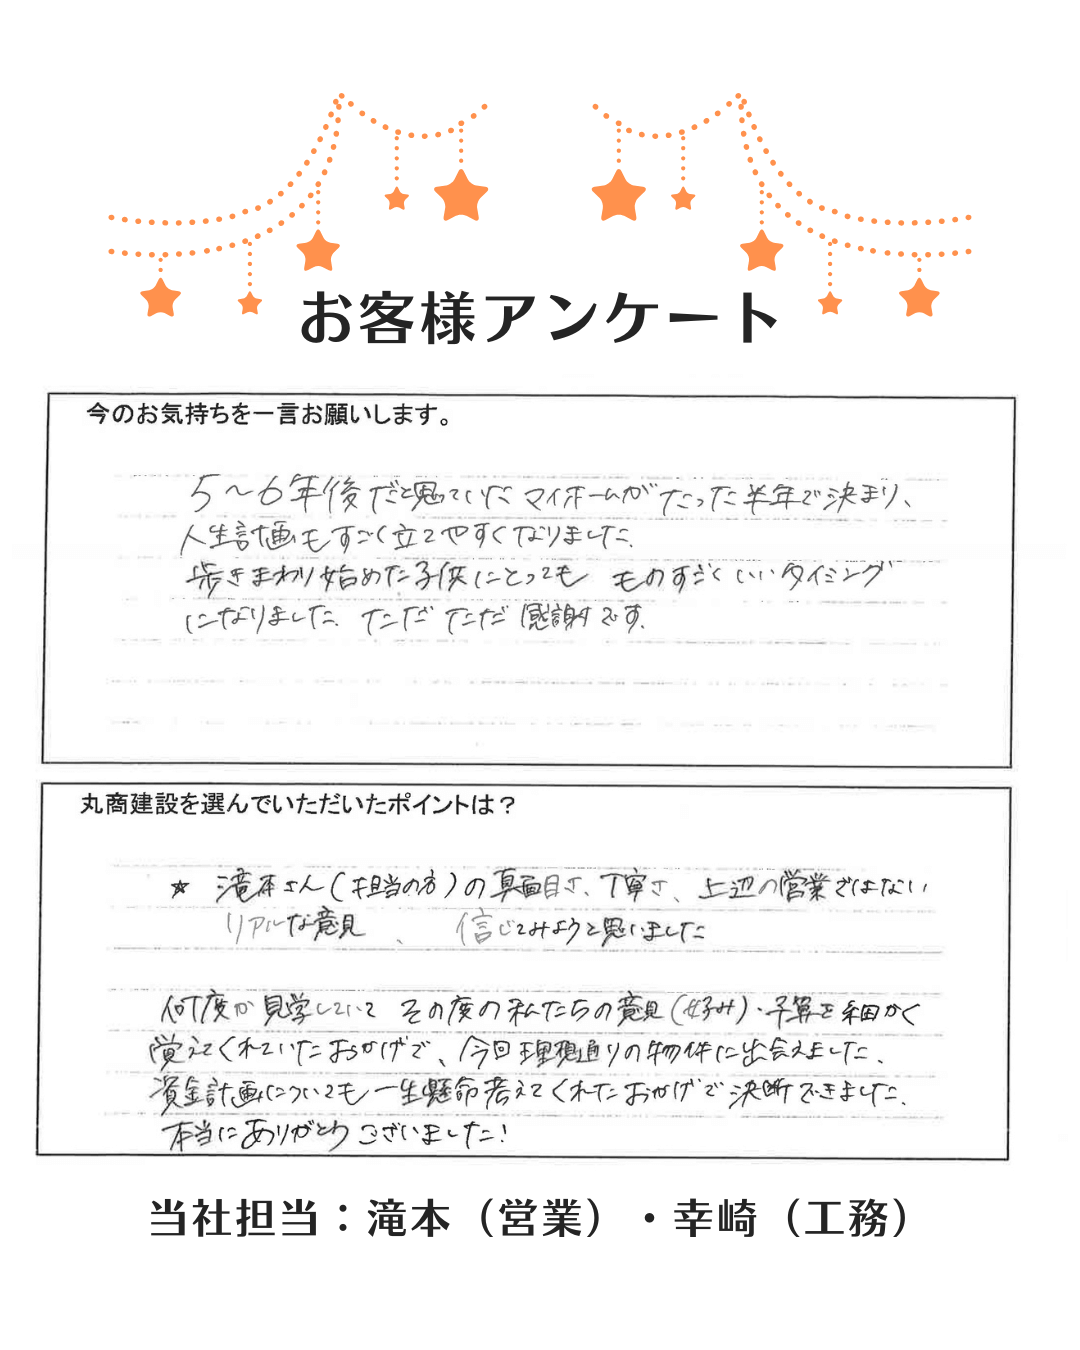 お客様アンケート
今のお気持ちを一言お願いします。
5〜6年後だと思っていた マイホームが たった半年で決まり、
人生計画もすごく立てやすくなりました。
歩きまわり始めた子供にとっても ものすごくいいタイミング
になりました。ただただ感謝です。
丸商建設を選んでいただいたポイントは？
★ 滝本さん(担当の方)の真面目さ、丁寧さ、上辺の営業ではない
リアルな意見、 信じてみようと思いました
何度か見学していて その度の私たちの意見(好み)・予算を細かく
覚えてくれていたおかげで、今回理想通りの物件に出会えました。
資金計画についても一生懸命考えてくれたおかげで決断できました。
本当にありがとうございました!
当社担当：滝本（営業）・幸崎（工務）